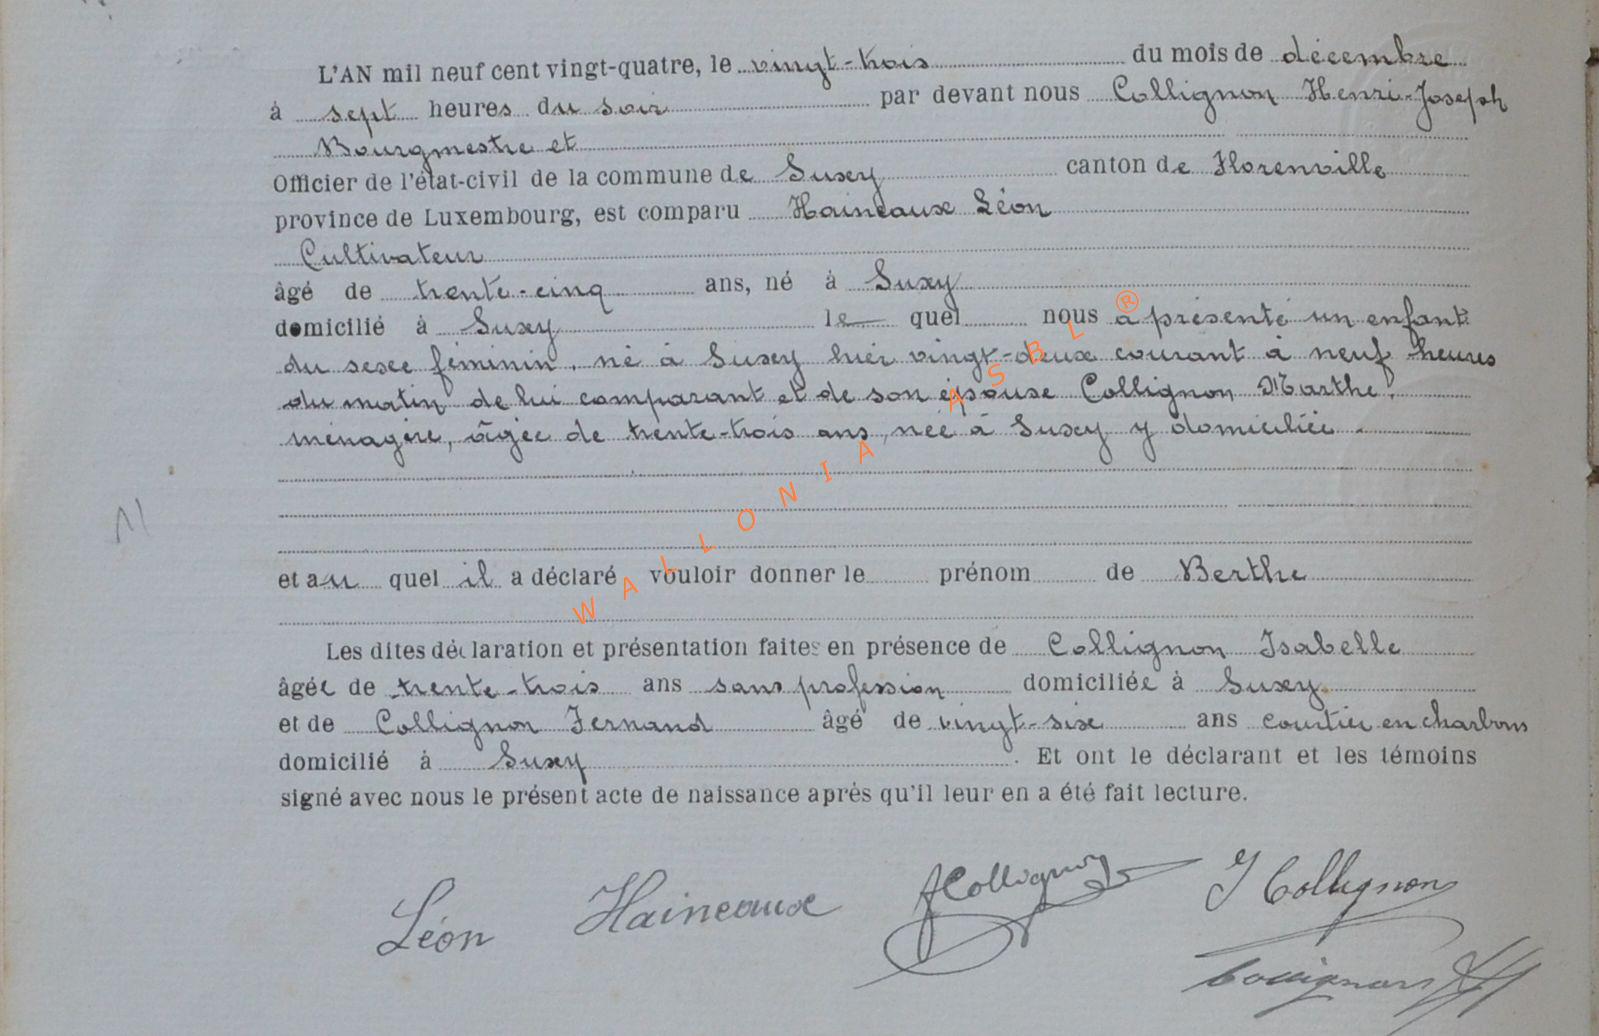 L'AN mil neuf cent vingt-quatre, le vingt-trois du mois de décembre
à sept heures du soir par devant nous Collignon Henri-Joseph
Bourgmestre et
Officier de l'état-civil de la commune de Suxy canton de Florenville
province de Luxembourg, est comparu Haineaux Léon
Cultivateur
âgé de trente-cinq ans, né à Suxy
domicilié à Suxy lequel nous a présenté un enfant
du sexe féminin, né à Suxy hier vingt-deux courant à neuf heures
du matin de lui comparant et de son épouse Collignon Marthe,
ménagère, âgée de trente-trois ans, née à Suxy y domiciliée.
et au quel il a déclaré vouloir donner le prénom de Berthe
Les dites déclaration et présentation faites en présence de Collignon Isabelle
âgée de trente-trois ans sans profession domiciliée à Suxy
et de Collignon Fernand âgé de vingt-six ans courtier en charbons
domicilié à Suxy. Et ont le déclarant et les témoins
signé avec nous le présent acte de naissance après qu'il leur en a été fait lecture.
Léon Haineaux FCollignon I Collignon
Collignon HJ
WALLONIA ASBL ®